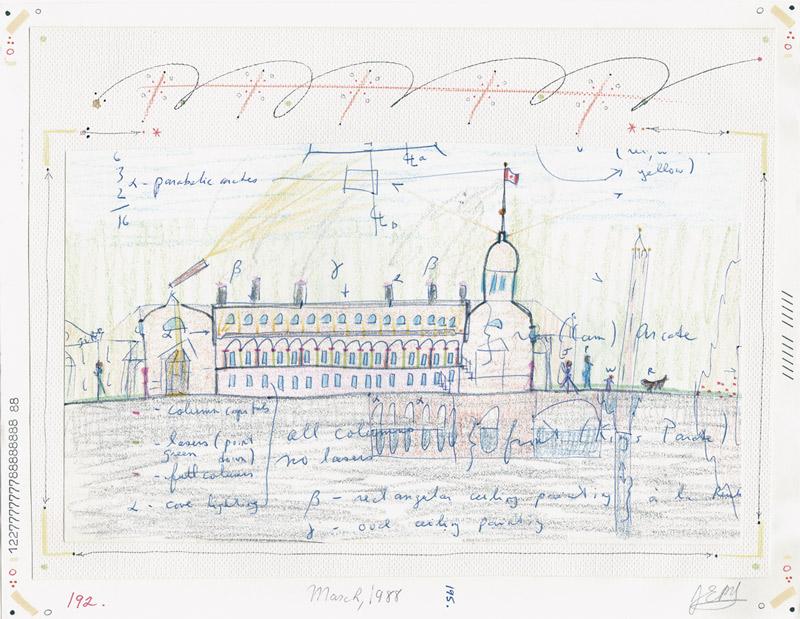 Ha
6
3
2
16
α - parabolic arches
yellow)
Hb
β
γ
2
β
α
Arcade
J
W
R
- column capitals
- lasers (point
green down)
- full columns
α - cove lighting
all columns
no lasers
} front (Kings Parade)
β - rectangular ceiling painting } à la
γ - oval ceiling painting
12277777777788888888888 88
192.
March, 1988
195.